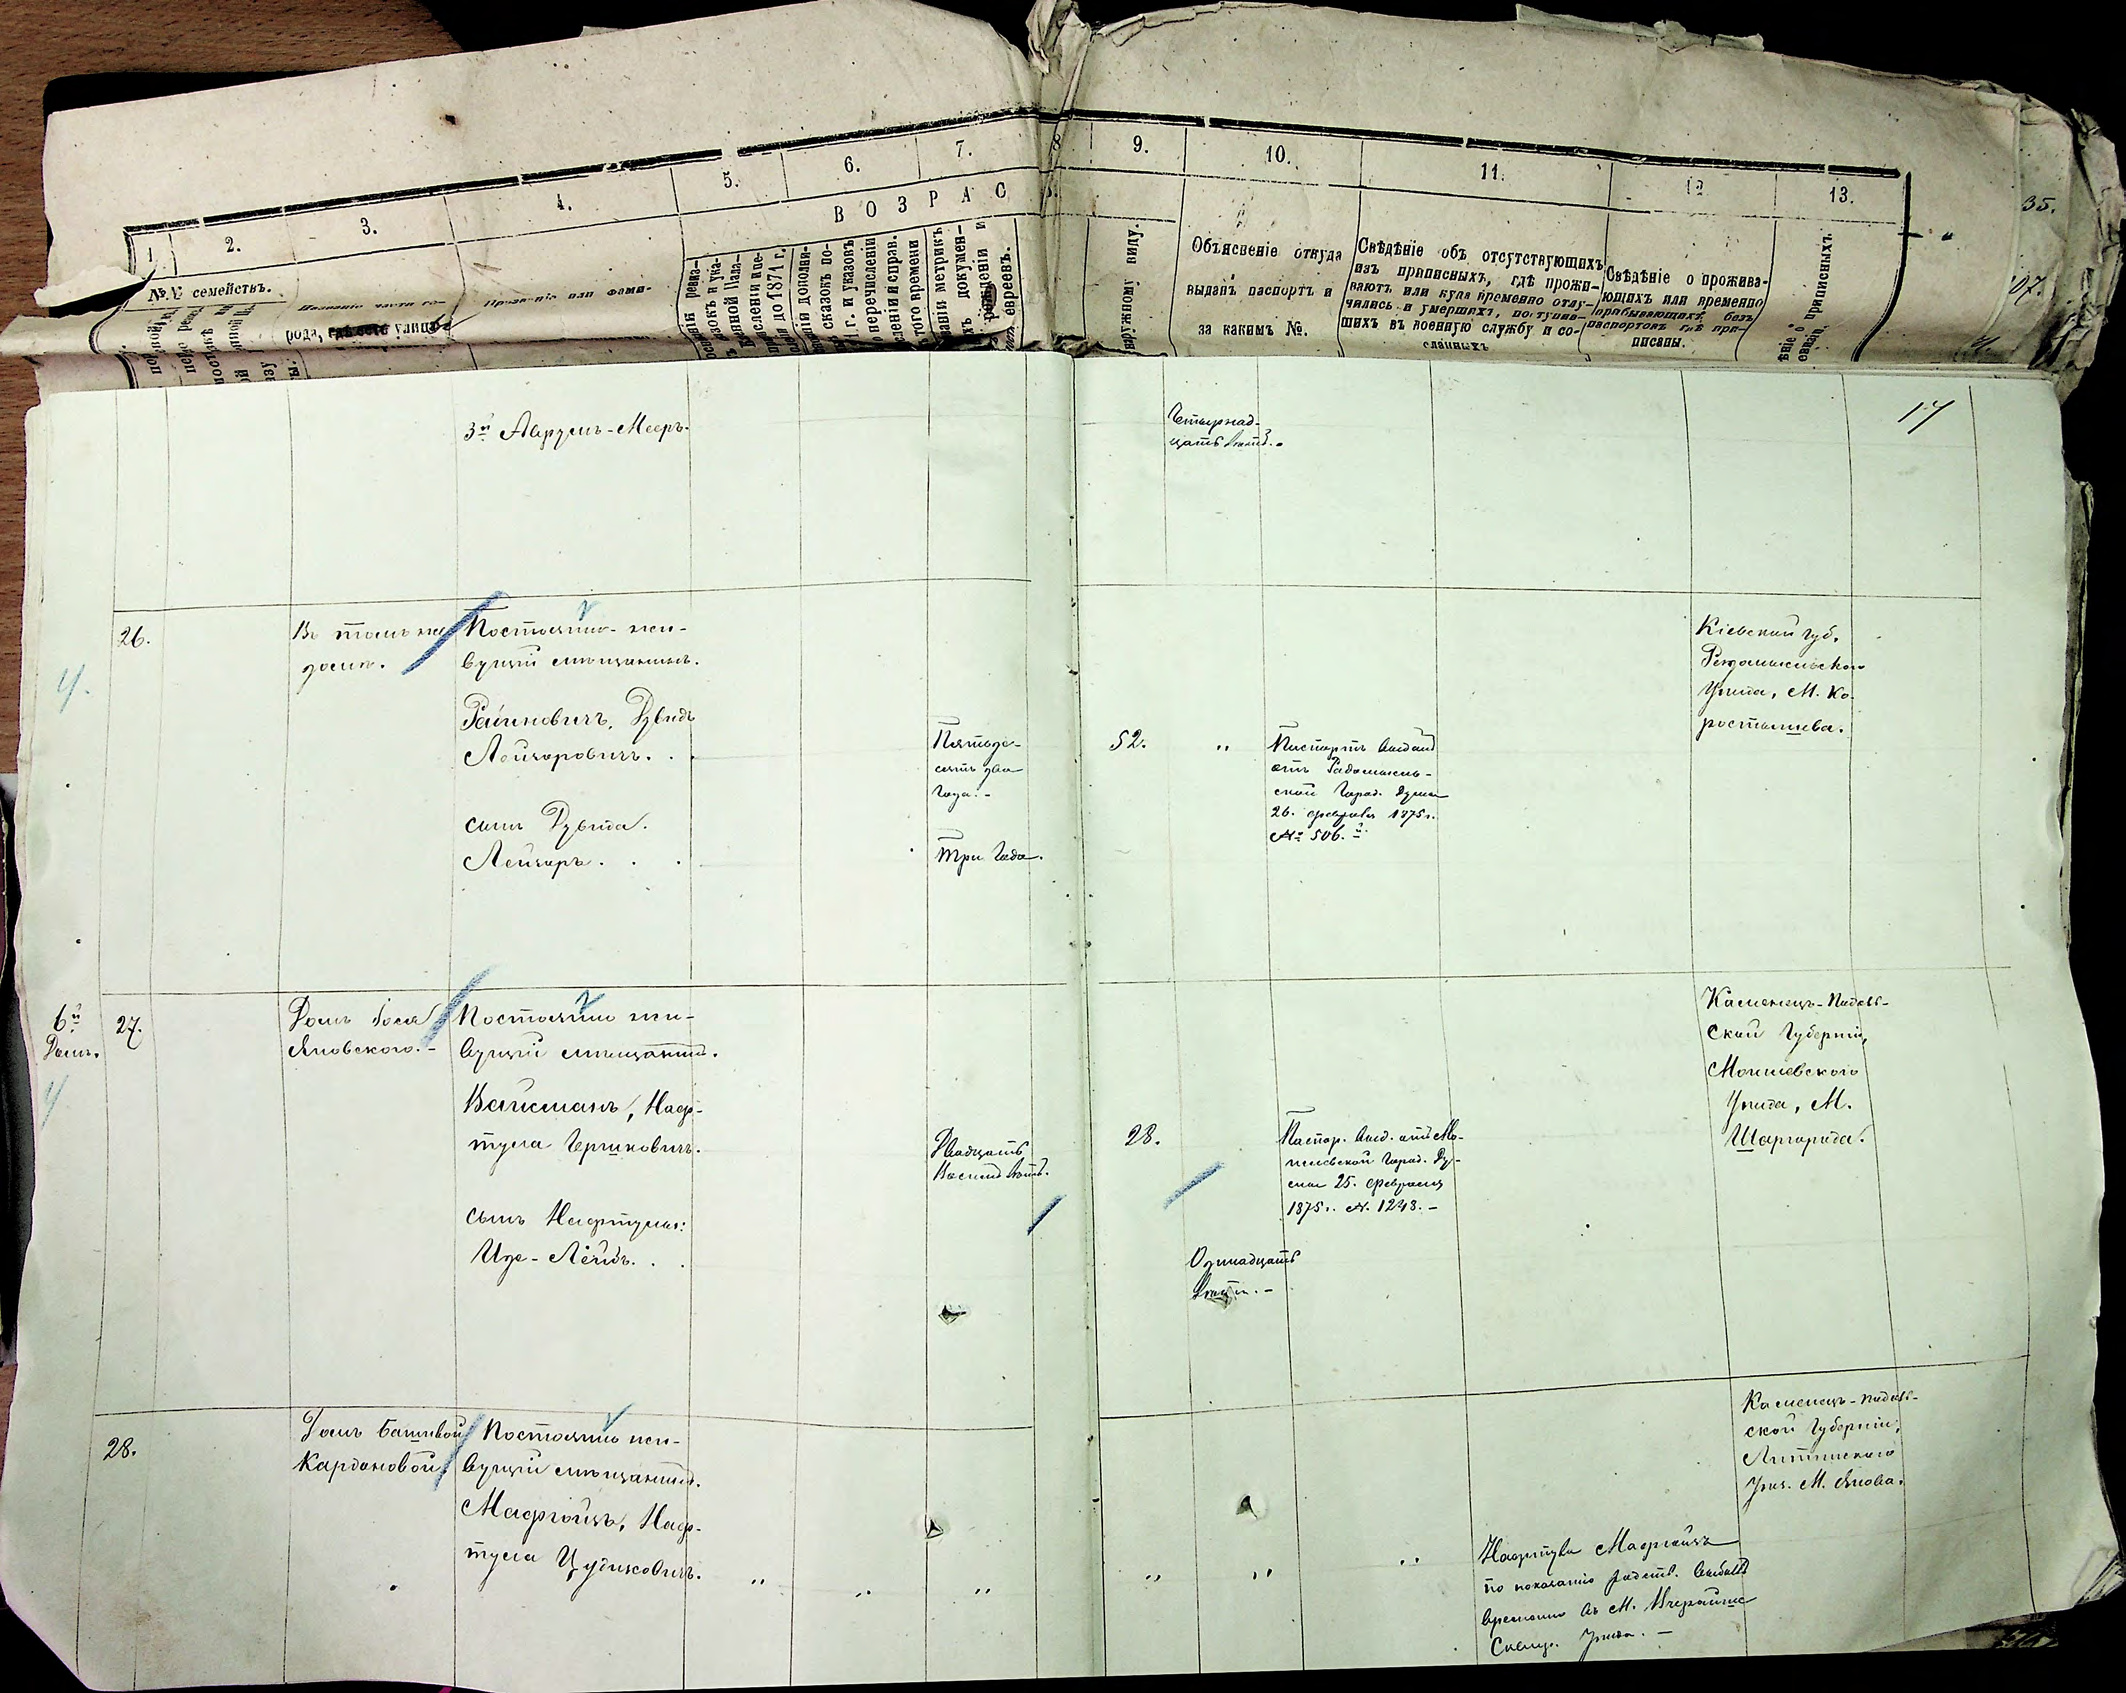 1. 2. 3. 4. 5. 6. 7. 8 9. 10. 11. 12 13.
ВОЗРАС
35.
№№ семействъ.
Названіе части го-
рода, гдѣ есть улица
Прозваніе или фами-
до 1871 г.
евреевъ.
наружному виду.
Объясненіе откуда
выданъ паспортъ и
за какимъ №.
Свѣдѣніе объ отсутствующихъ
изъ приписныхъ, гдѣ прожи-
ваютъ или куда временно отлу-
чились и умершихъ, поступив-
шихъ въ военную службу и со-
сланныхъ
Свѣдѣніе о прожива-
ющихъ или временно
прибывающихъ безъ
паспортовъ гдѣ при-
писаны.
приписныхъ
17
3й Аврумъ-Мееръ.
Четырнад-
цать лѣтъ.
26.
Въ томъ же
домѣ.
Постоянно-жи-
вущій мѣщанинъ.
Рабиновичъ, Дувидъ
Лейзоровичъ. . .
Пятьде-
сятъ два
года. -
52.
"
Паспортъ выдан
отъ Радомысль-
ской Город. Думы
26. февраля 1875 г.
№ 506.
Кіевской губ.
Радомысльскаго
Уѣзда, М. Ко-
ростышева.
сынъ Дувида.
Лейзоръ . . .
Три года.
4.
6й
Домъ.
27.
Домъ Іося
Яновского. -
Постоянно жи-
вущій мѣщанинъ.
Вайсманъ, Наф-
тула Гершковичъ.
Двадцать
Восемь лѣтъ.
28.
Паспор. выд. отъ Мо-
гилевской Город. Ду-
мы 25. февраля
1875 г. №. 1248. -
Каменецъ-Подоль-
ской Губерніи,
Могилевского
Уѣзда, М.
Шаргорода.
сынъ Нафтулы:
Иде-Лейбъ. . .
Одинадцать
лѣтъ. -
4
28.
Домъ
Кардановой
Постоянно жи-
вущій мѣщанинъ.
Мафіойзъ, Наф-
тула Цудиковичъ.
" " " " " "
Нафтула Мафіойзъ
по показанію родств. выбылъ
временно въ М. Вчерайше
Сквир. Уѣзда. -
Каменецъ-Подоль-
ской Губерніи,
Литинского
Уѣз. М. Янова.